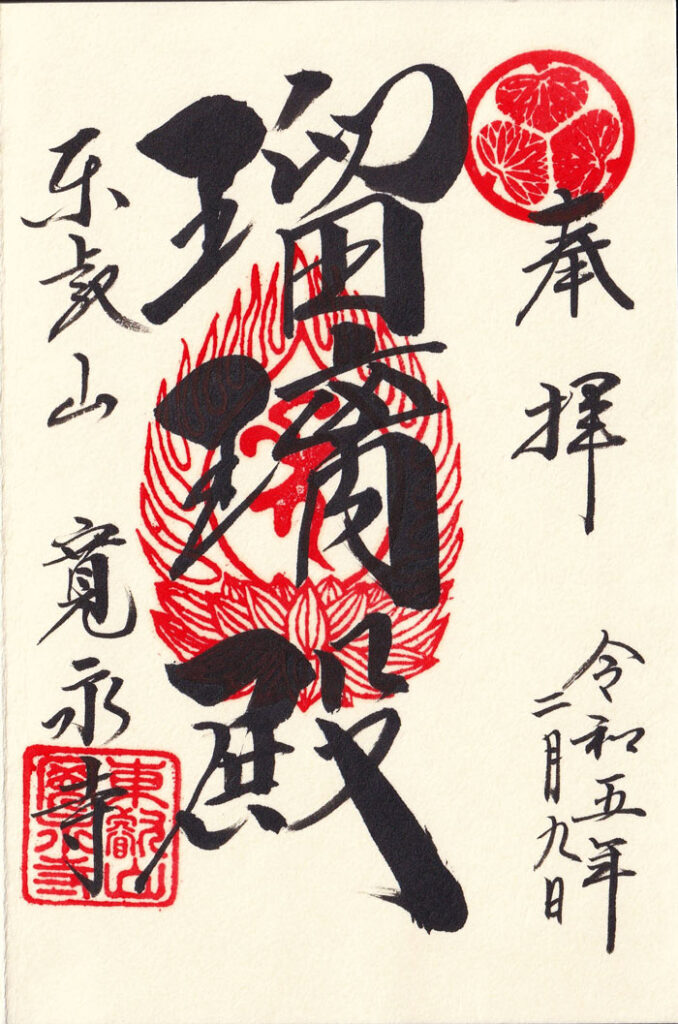 奉拝
令和五年
二月九日
瑠璃殿
東叡山 寛永寺
東叡山
寛永寺